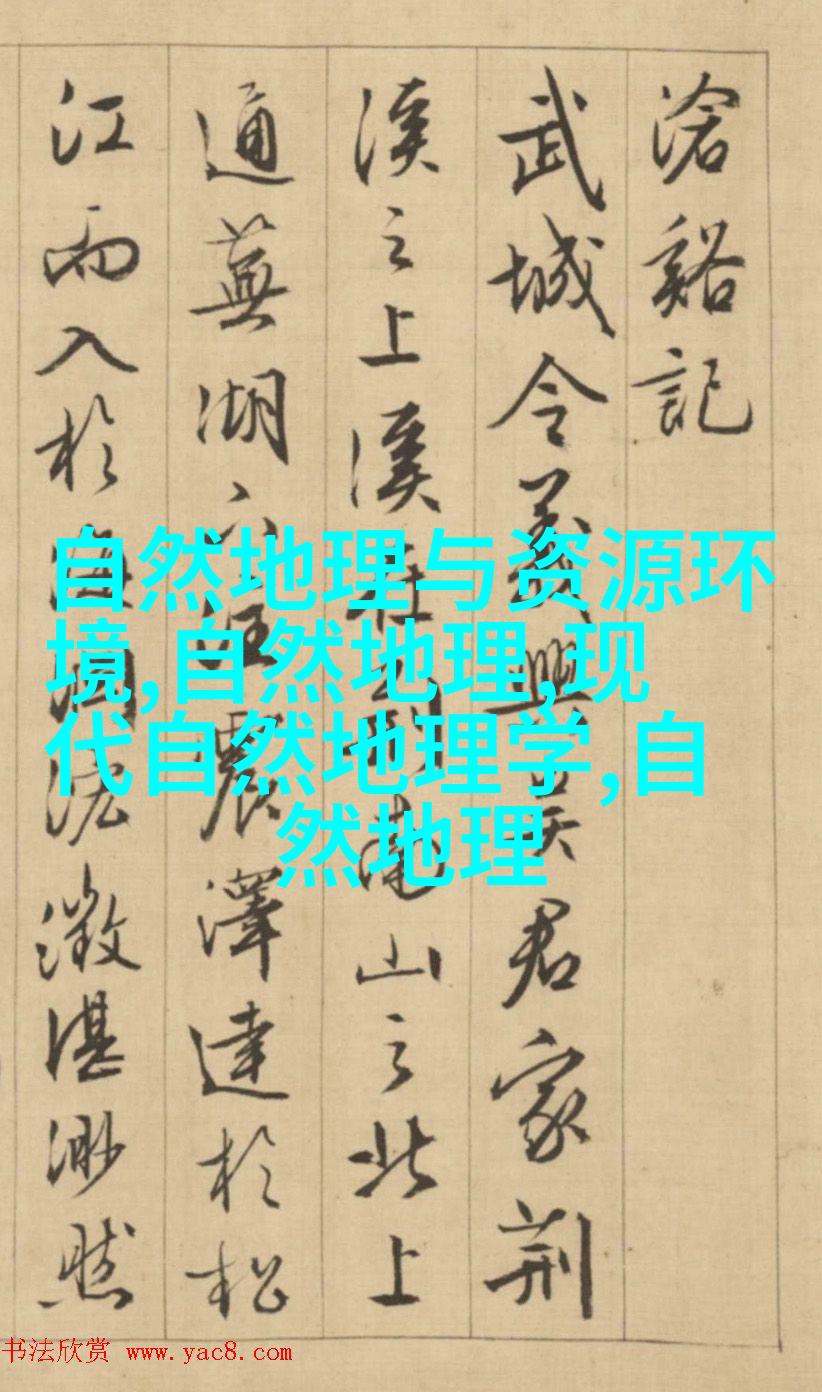 滄谿記
武城令義興吳君家荆
溪之上溪在荆南山之北上
通蕪湖下注震澤達於松
江而入於海澂湛渺然
自然地理与资源环
境,自然地理,现
代自然地理学,自
然地理
书法欣赏 www.yac8.com